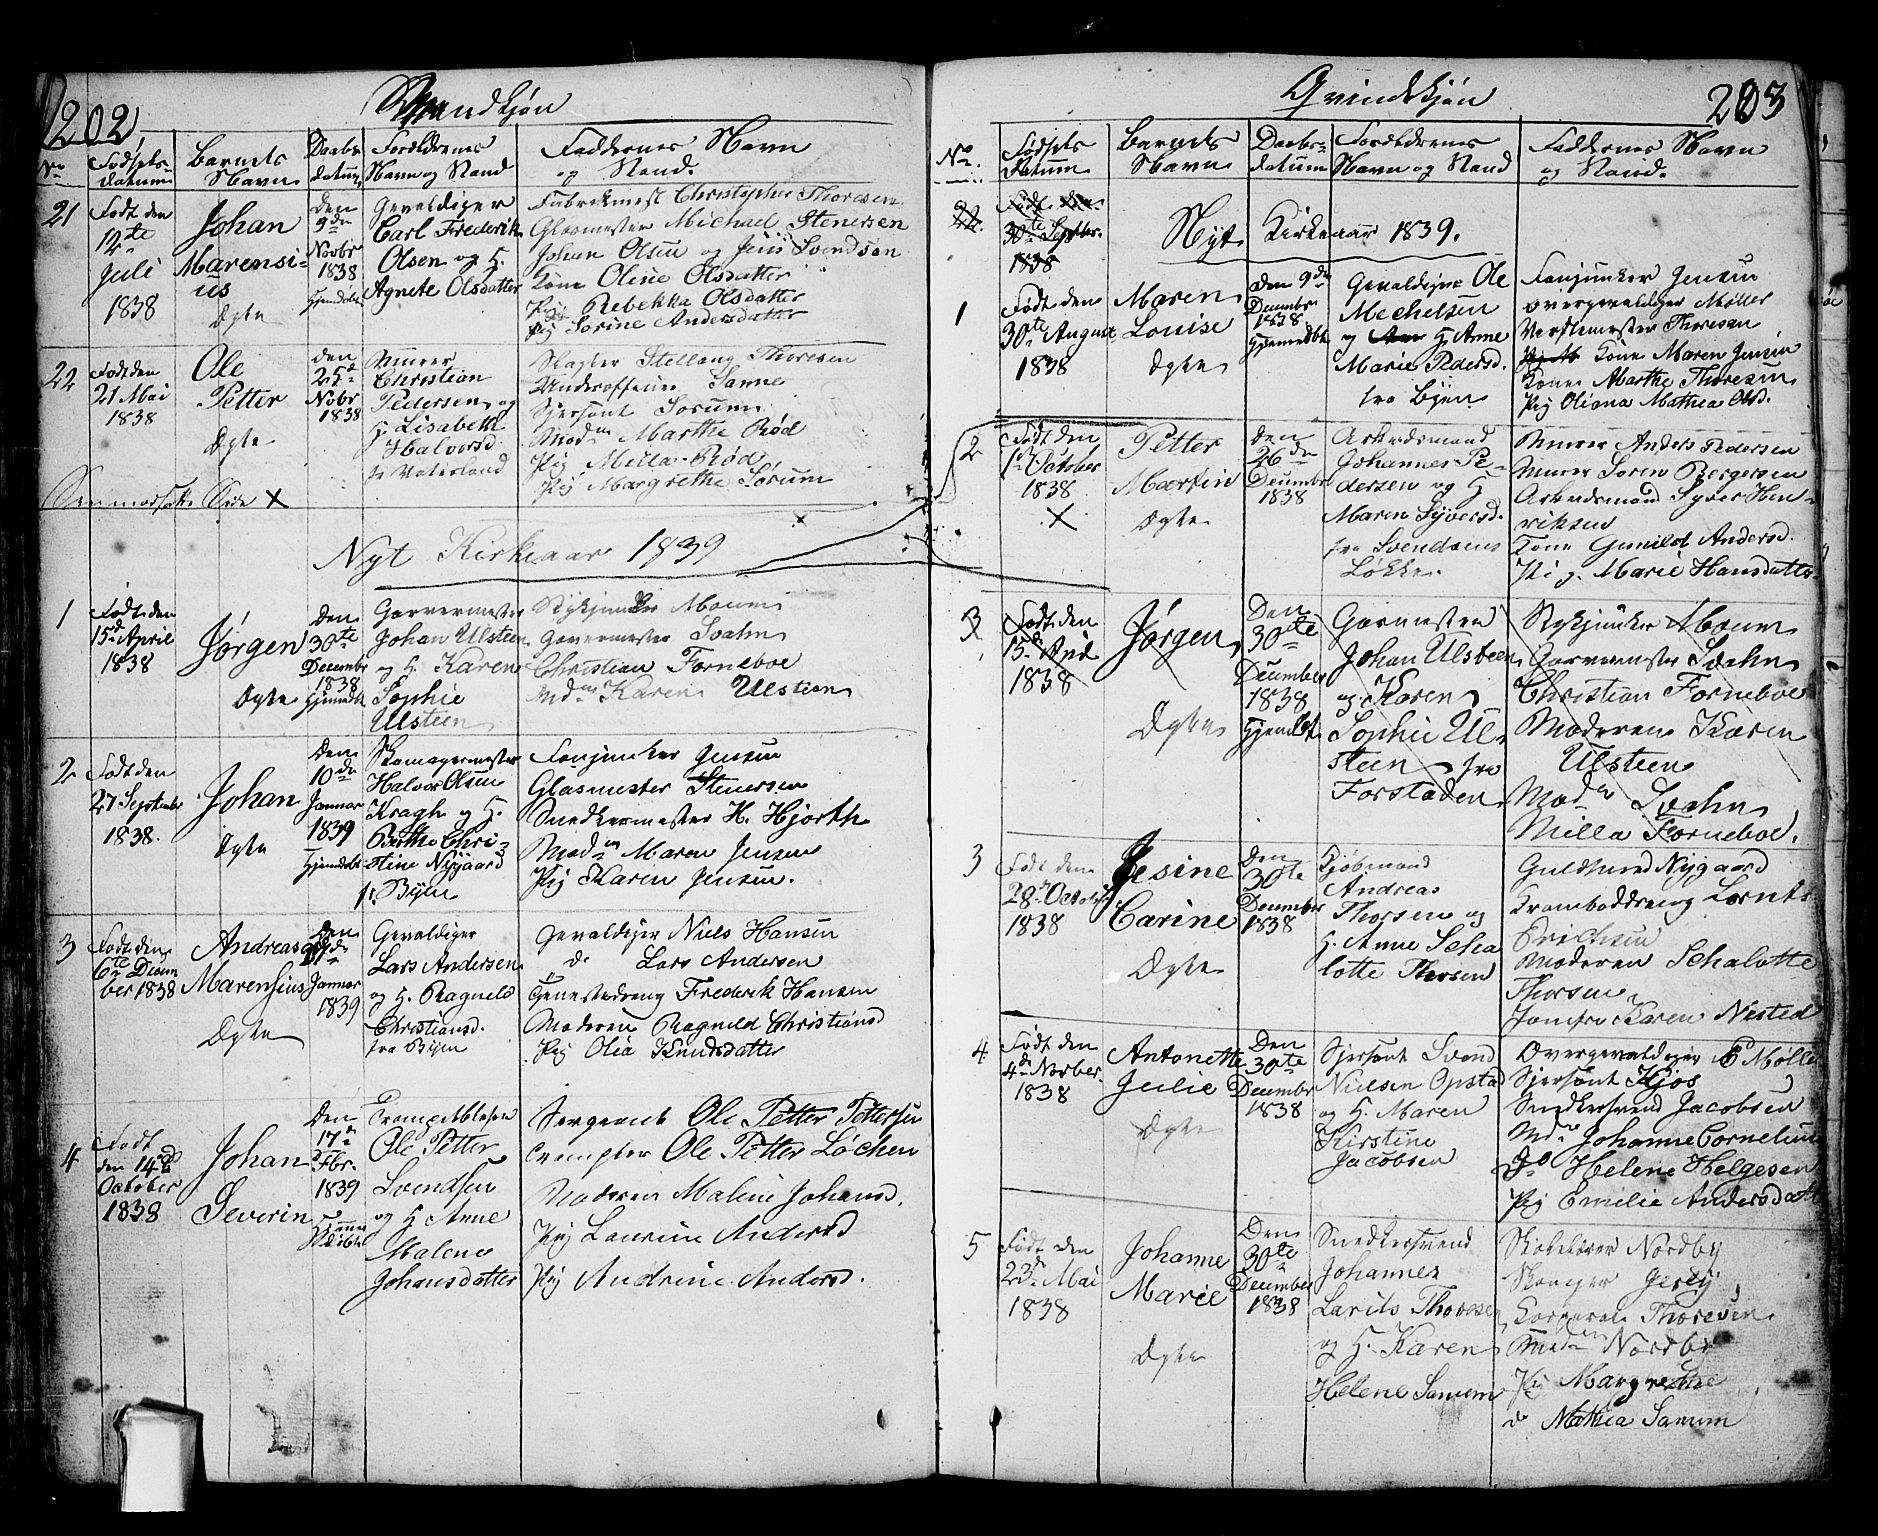 202
Mandkjøn
No
Fødsels Datum
Barnets Navn
Daabs datum
Forældrenes Navn og Stand
Faddernes Navn og Stand.
21
Født den
12te
Juli
1838
Johan
Marensi-
us
Ægte
Den
9de
Novbr
1838
Hjemdøbt
Gevaldiger
Carl Frederik
Olsen og H.
Agnete Olsdatter
Fabrikmest Christopher Thoresen
Glasmester Michael Stenersen
Johan Olsen og Jens Svendsen
Kone Oline Olsdatter
Pig Rebekka Olsdatter
Pig Sorine Andersdatter
22
Født den
21 Mai
1838
Ole
Petter
Ægte
den
25de
Novbr
1838
Murer
Christian
Pedersen og
H. Lisabeth
Halvorsd
fr Vaterland
Slagter Stellang Thoresen
Underofficeer Sanne
Sjersant Sorum
Madm Marthe Rød
Pig Milla Rød
Pig Margrethe Sørum
See modsatte Side X
X
Nyt Kirkeaar 1839
1
Født den
15d April
1838
Jørgen
Ægte
Den
30te
Decembr
1838
Hjemdøbt
Garvermester
Johan Ulsteen
og H. Karen
Sophie
Ulsteen
Stykjunker Moum
Garvermester Svahn
Christian Forneboe
Md Karen Ulsteen
2
Født den
27 Septembr
1838.
Johan
Ægte
Den
10de
Januar
1839
Hjemdøbt
Skomagermester
Halvor Olsen
Kragh og H.
Berthe Chri-
stine Nygaard
fr. Byen
Fanjunker Jensen
Glasmester Stenersen
Snedkermester H. Hjorth
Madm Maren Jensen
Pig Karen Jensen.
3
Født den
6te Decem
ber 1838
Andreas
Marensius
Ægte
Den
Januar
1839
Gevaldiger
Lars Andersen
og H. Ragnild
Christiansd.
fra Byen
Gevaldiger Niels Hansen
do Lars Andersen
Tjenestedreng Frederik Hansen
Moderen Ragnild Christiansd
Pig Olia Knudsdatter
4
Født
den 14de
October
1838
Johan
Severin
Den
17de
Fbr.
1839
Hjemmedøbt
Trompetblæser
Ole Petter
Svendsen
og H Anne
Malene
Johansdatter
Sergeant Ole Petter Pettersen
Trompter Ole Petter Løchen
Moderen Malene Johansd.
Pig Laurine Andersd
Pig Andrine Andersd.
Qvindekjøn
203
No.
Fødsels Datum
Barnets Navn
Daabs datum
Forældrenes Navn og Stand
Faddernes Navn og Stand.
Født den
30te Septbr.
1838
Nyt Kirkeaar 1839.
1
Født den
30te August
1838
Maren
Louise
Ægte
Den 9de
Decembr
1838
Hjemmedøbt
Gevaldiger Ole
Mechelsen
og H. Anne
Marie Pedersd.
fra Byen
Fanjunker Jensen
Overgevaldiger Møller
Værktmester Thoresen
Kone Maren Jensen
Kone Marthe Thoresen
Pig Oliana Mathea Olsd.
2
Født den
1te October
1838
X
Petter
Martin
Ægte
Den
26de
Decembr
1838
Arbeidsmand
Johannes Pe-
dersen og H
Maren Syversd.
fra Svendsens
Løkke.
Murer Anders Pedersen
Murer Soren Bergersen
Arbeidsmand Syver Hen-
riksen
Kone Gunild Andersd.
Pig. Marie Hansdatter
3
Født den
15de
1838
Jørgen
Ægte
Den
30te
December
1838
Hjemdøbt
Garmester
Johan Ulsteen
og Karen
Sophie Ul-
steen fra
Forstaden
Stykjunker Moum
Garvermester Svahn
Christian Forneboe
Moderen Karen
Ulsteen
Madm Svahn
Milla Forneboe.
3
Født den
28de October
1838
Jesine
Carine
Ægte
Den
30te
December
1838
Kjøbmand
Andreas
Thorsen og
H. Anne Scha
lotte Thorsen
Guldsmed Nygaard
Krambodsreng Lornts
Erichsen
Moderen Schalotte
Thorsen
Jomfru Karen Nisted
4
Født den
4de Novber.
1838
Antonette
Julie
Ægte
Den
30te
December
1838
Sjersant Svend
Nielsen Opstad
og H. Maren
Kirstine
Jacobsen
Overgevaldiger P Mølle
Sjersant Kjøs
Snedkersvend Jacobsen
Md Johanne Cornelius
Do Helene Helgesen
Pig Emelie Andersdatt
5
Født den
23de Mai
1838
Johanne
Marie
Ægte
Den
30te
December
1838
Snedkersvend
Johannes
Larits Thoresen
og H. Karen
Helene Sanum
Skolelærer Nordby
Skomager
Korporal Thoresen
Madmen Nordby
Pig Margrethe
do Mathea Sanum